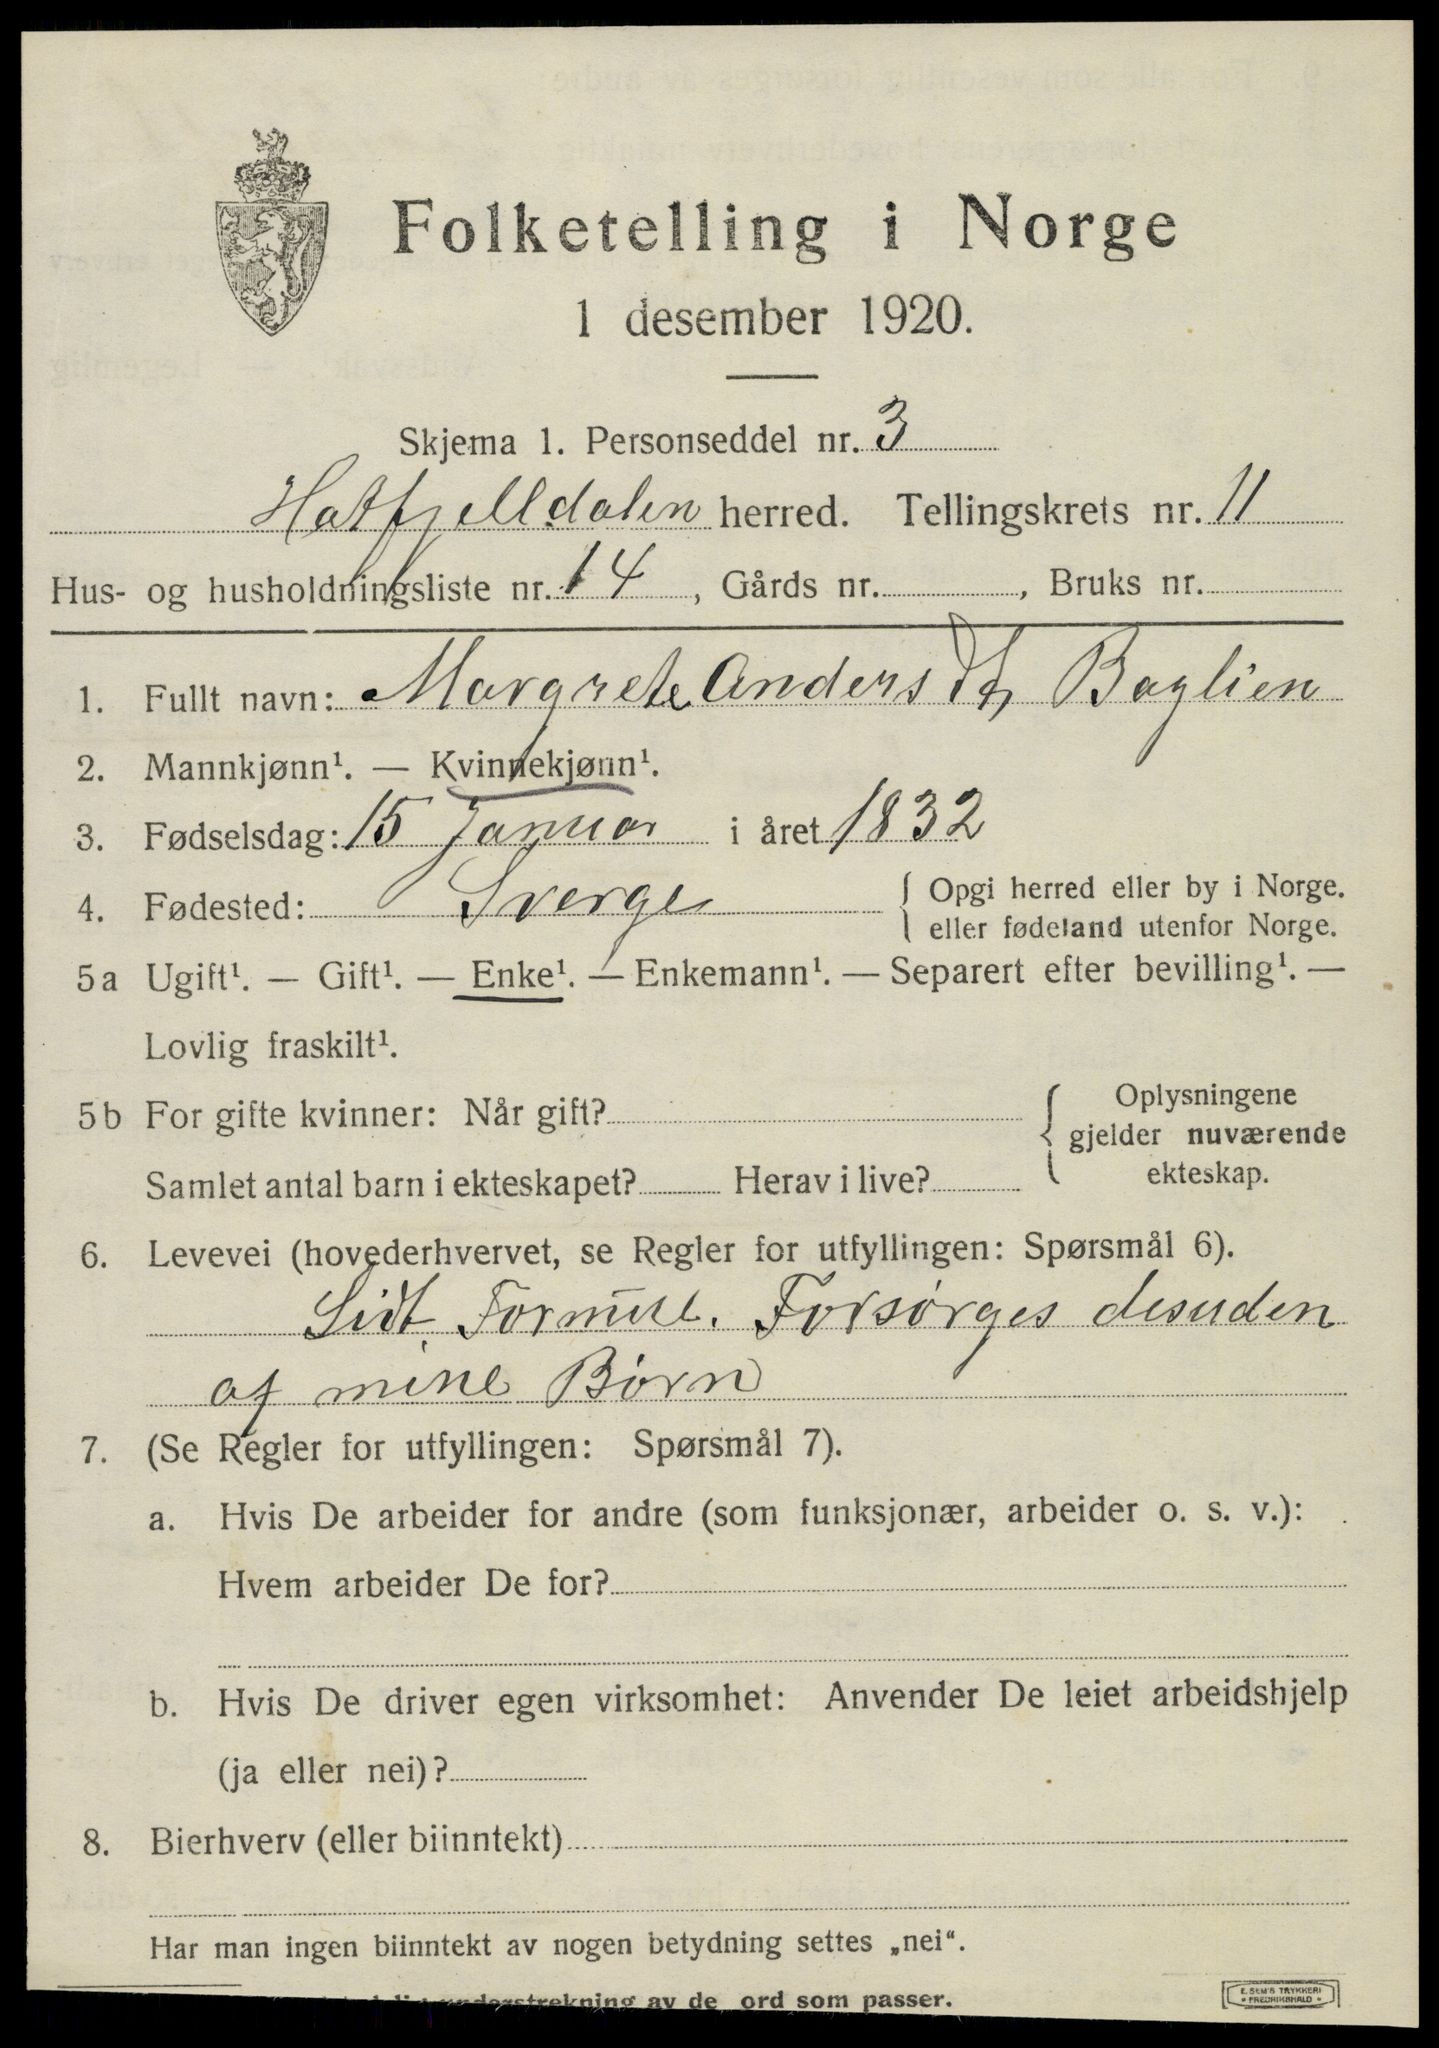 Folketelling i Norge
1 desember 1920.
Skjema 1. Personseddel nr. 3
Hatfjelldalen herred. Tellingskrets nr. 11
Hus- og husholdningsliste nr. 14, Gårds nr. , Bruks nr.
1. Fullt navn: Margrete Anders Dtr Baglien
2. Mannkjønn¹. — Kvinnekjønn¹.
3. Fødselsdag: 15 Januar i året 1832
4. Fødested: Sverge { Opgi herred eller by i Norge.
eller fødeland utenfor Norge.
5a Ugift¹. — Gift¹. — Enke¹. — Enkemann¹. — Separert efter bevilling¹. —
Lovlig fraskilt¹.
5b For gifte kvinner: Når gift? { Oplysningene
gjelder nuværende
Samlet antal barn i ekteskapet? Herav i live? ekteskap.
6. Levevei (hovederhvervet, se Regler for utfyllingen: Spørsmål 6).
Lidt Formue. Forsørges desuden
af mine Børn
7. (Se Regler for utfyllingen: Spørsmål 7).
a. Hvis De arbeider for andre (som funksjonær, arbeider o. s. v.):
Hvem arbeider De for?
b. Hvis De driver egen virksomhet: Anvender De leiet arbeidshjelp
(ja eller nei)?
8. Bierhverv (eller biinntekt)
Har man ingen biinntekt av nogen betydning settes „nei“.
understrekning av de ord som passer.
E. SEM'S TRYKKERI
FREDRIKSHALD